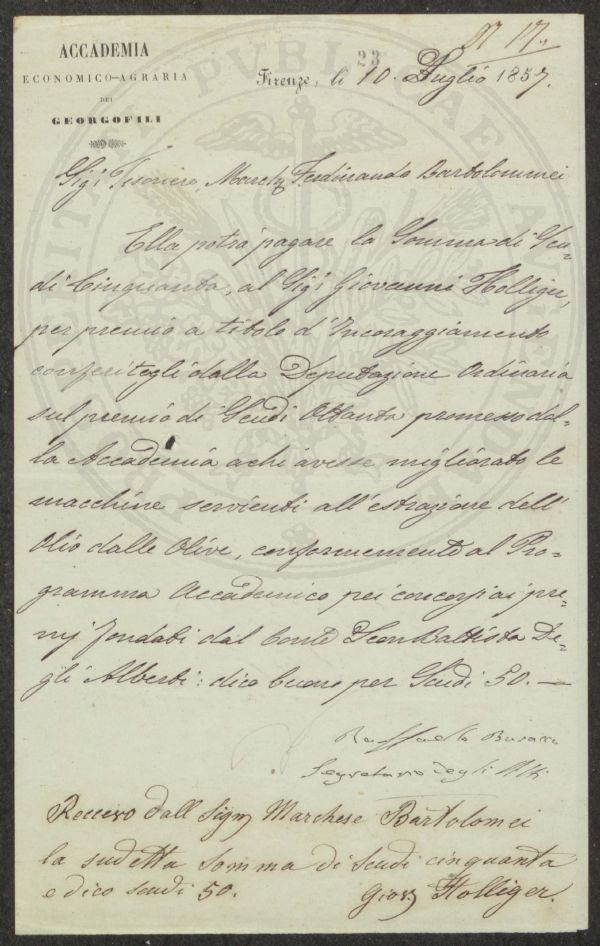 N 17.
ACCADEMIA
ECONOMICO-AGRARIA
DEI
GEORGOFILI
23
Firenze, li 10. Luglio 1857.
Sig. Tesoriere, March. Ferdinando Bartolommei
Ella potrà pagare la Somma di Scu-
di Cinquanta, al Sig. Giovanni Holliger,
per premio a titolo d'Incoraggiamento
conferitogli dalla Deputazione Ordinaria
sul premio di Scudi Ottanta promesso dal-
la Accademia a chi avesse migliorato le
macchine servienti all'estrazione dell'
Olio dalle Olive, conformemente al Pro-
gramma Accademico pei concorsi ai pre-
mj fondati dal Conte Leon Battista De-
gli Alberti: dico buono per Scudi 50. —
Raffaello
Segretario degli Atti
Recievo dall Sign Marchese Bartolomei
la sudetta Somma di Scudi cinquanta
e dico scudi 50. Giov Holliger.